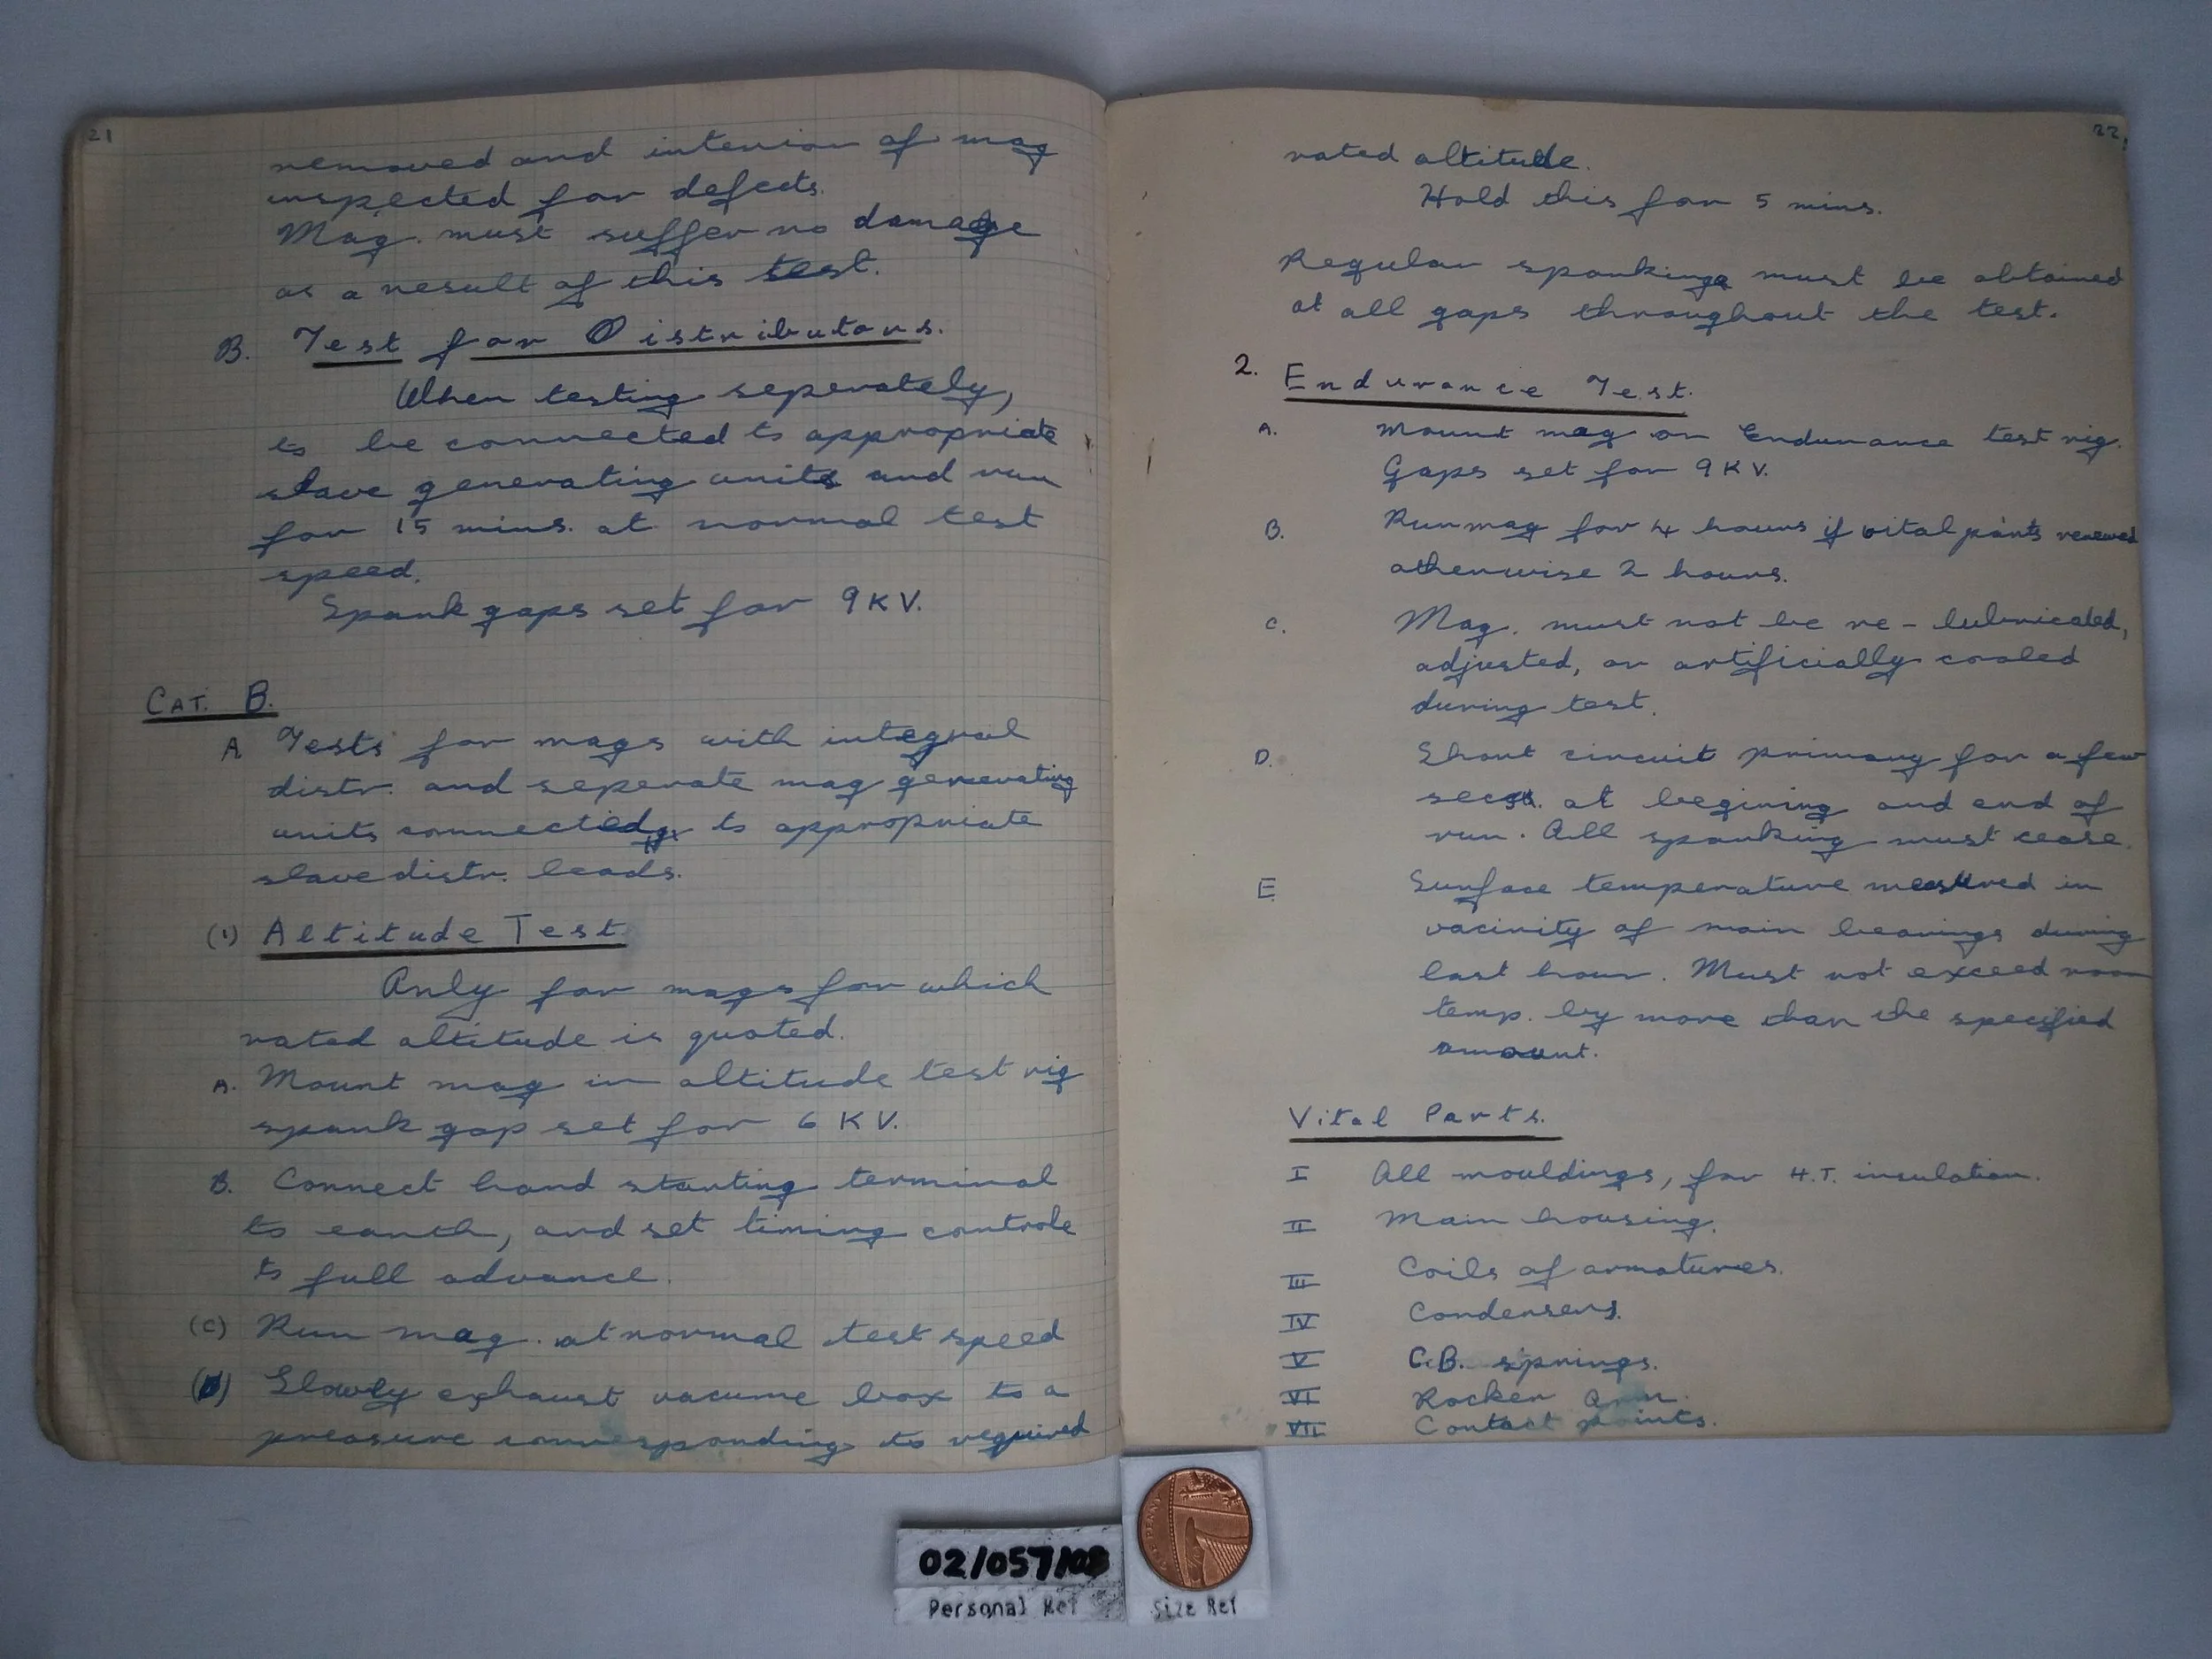 21
removed and interior of mag
inspected for defects.
Mag. must suffer no damage
as a result of this test.
B. Test for Distributors.
When testing seperately,
to be connected to appropriate
slave generating units and run
for 15 mins. at normal test
speed.
Spark gaps set for 9 KV.
CAT. B.
A Tests for mags with integral
distr. and seperate mag generating
units connected to appropriate
slave distr. leads.
(1) Altitude Test.
Only for mags for which
rated altitude is quoted.
A. Mount mag in altitude test rig
spark gap set for 6 KV.
B. Connect hand starting terminal
to earth, and set timing controle
to full advance.
(C) Run mag. at normal test speed
(D) Slowly exhaust vacume box to a
pressure corresponding to required
22
rated altitude.
Hold this for 5 mins.
Regular sparking must be obtained
at all gaps throughout the test.
2. Endurance Test.
A. Mount mag on Endurance test rig.
Gaps set for 9 KV.
B. Run mag for 4 hours if vital parts renewed
otherwise 2 hours.
C. Mag. must not be re-lubricated,
adjusted, or artificially cooled
during test.
D. Short circuit primary for a few
secs. at begining and end of
run. All sparking must cease.
E Surface temperature measured in
vacinity of main bearings during
last hour. Must not exceed room
temp. by more than the specified
amount.
Vital Parts.
I All mouldings, for H.T. insulation.
II Main housing.
III Coils of armatures.
IV Condensers.
V C.B. springs.
VI Rocker Arm.
VII Contact points.
02/057/08
Personal Ref
Size Ref